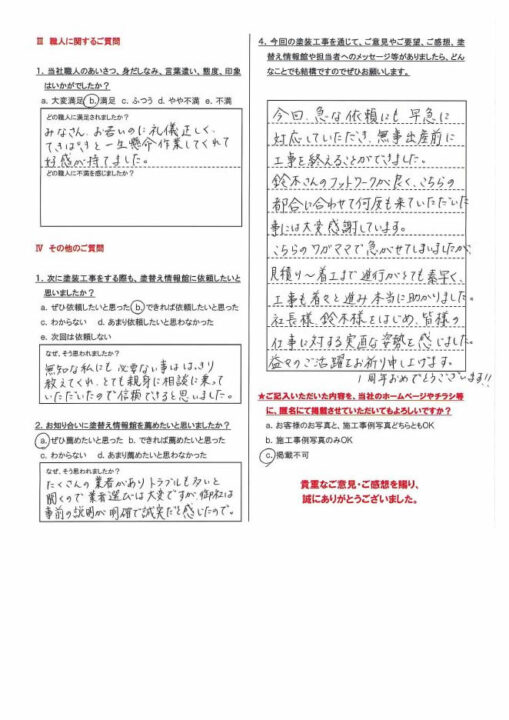 III 職人に関するご質問
1. 当社職人のあいさつ、身だしなみ、言葉遣い、態度、印象
はいかがでしたか？
a. 大変満足 b. 満足 c. ふつう d. やや不満 e. 不満
どの職人に満足されましたか？
みなさん、お若いのに礼儀正しく、
てきぱきと一生懸命作業してくれて
好感が持てました。
どの職人に不満を感じましたか？
IV その他のご質問
1. 次に塗装工事をする際も、塗替え情報館に依頼したいと
思いましたか？
a. ぜひ依頼したいと思った b. できれば依頼したいと思った
c. わからない d. あまり依頼したいと思わなかった
e. 次回は依頼しない
なぜ、そう思われましたか？
無知な私にも 必要ない事は はっきり
教えてくれ、とても親身に相談に乗って
いただいたので信頼できると思いました。
2. お知り合いに塗替え情報館を薦めたいと思いましたか？
a. ぜひ薦めたいと思った b. できれば薦めたいと思った
c. わからない d. あまり薦めたいと思わなかった
なぜ、そう思われましたか？
たくさんの業者がありトラブルも多いと
聞くので業者選びは大変ですが、御社は
事前の説明が明確で誠実だと感じたので。
4. 今回の塗装工事を通じて、ご意見やご要望、ご感想、塗
替え情報館や担当者へのメッセージ等がありましたら、どん
なことでも結構ですのでぜひお願いします。
今回、急な依頼にも早急に
対応していただき、無事出産前に
工事を終えることができました。
鈴木さんのフットワークが良く、こちらの
都合に合わせて何度も来ていただいた
事には大変感謝しています。
こちらのワガママで急がせてしまいましたが、
見積り〜着工まで進行がとても素早く、
工事も着々と進み本当に助かりました。
社長様、鈴木様をはじめ、皆様の
仕事に対する実直な姿勢を感じました。
益々のご活躍をお祈り申し上げます。
1周年おめでとうございます!!
★ご記入いただいた内容を、当社のホームページやチラシ等
に、匿名にて掲載させていただいてもよろしいですか？
a. お客様のお写真と、施工事例写真どちらともOK
b. 施工事例写真のみOK
c. 掲載不可
貴重なご意見・ご感想を賜り、
誠にありがとうございました。